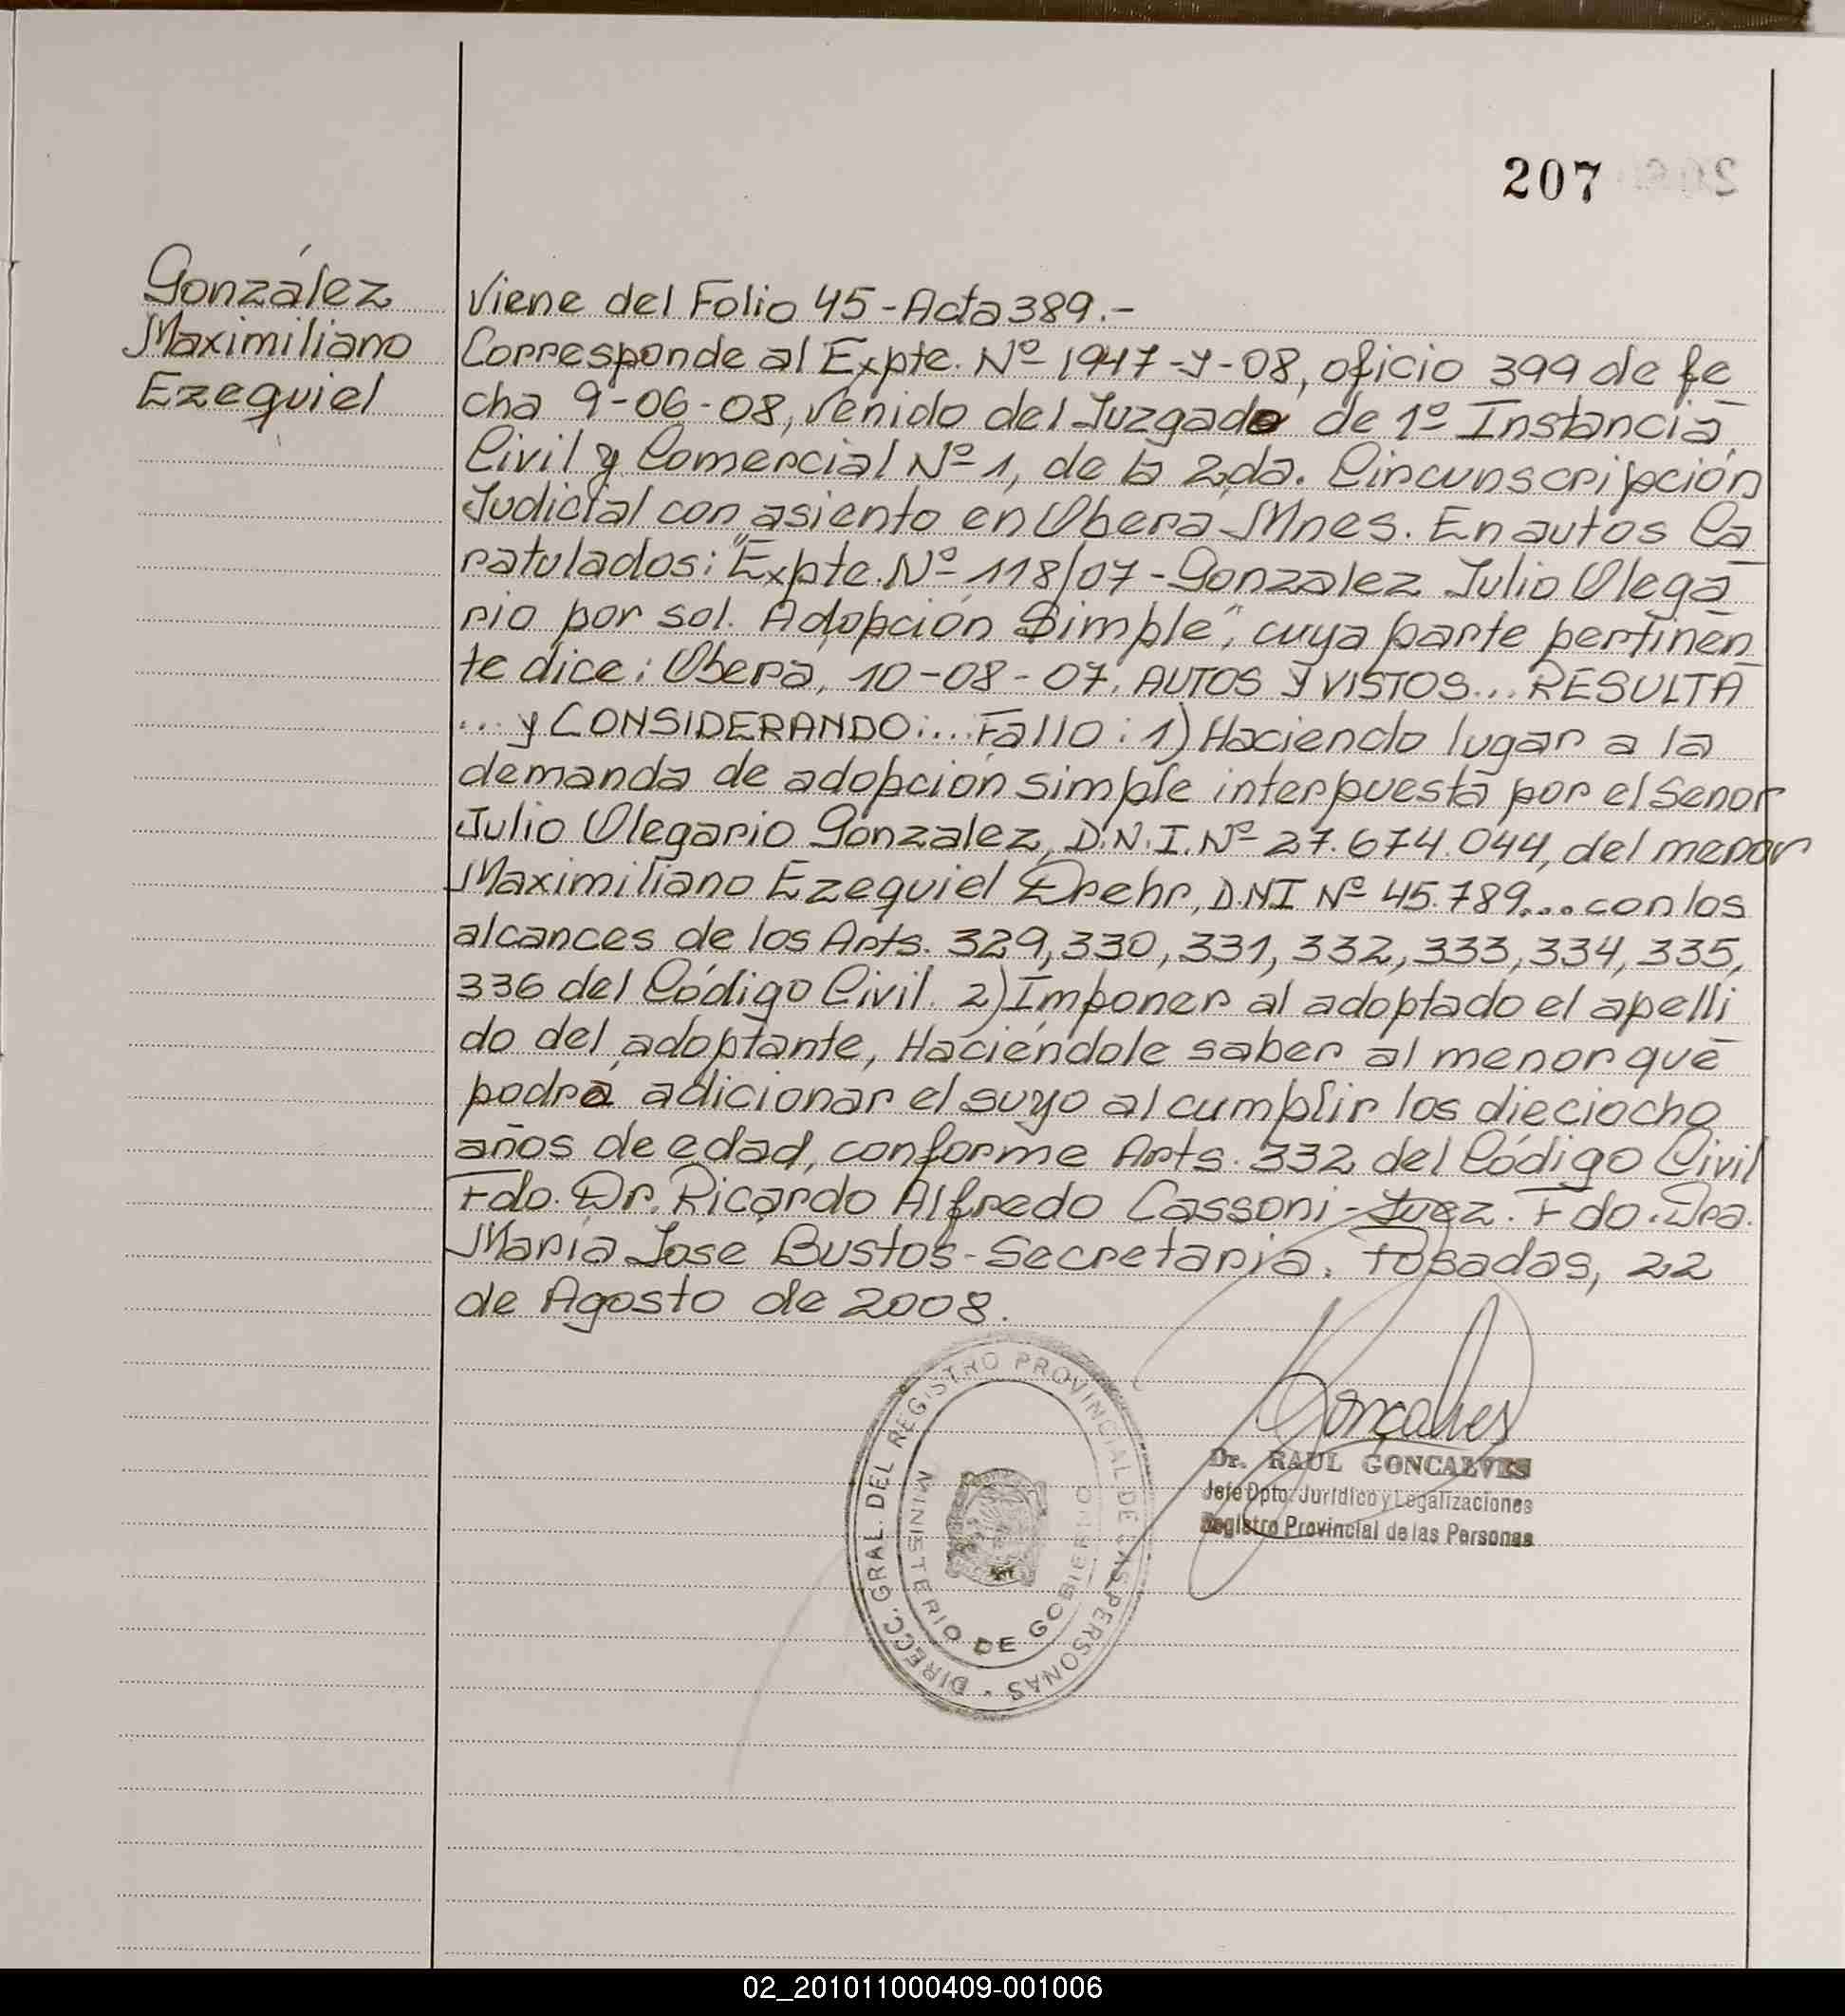 207
González
Maximiliano
Ezequiel
Viene del Folio 45 - Acta 389.-
Corresponde al Expte. Nº 1947-Y-08, oficio 399 de fe
cha 9-06-08, venido del Juzgado de 1º Instancia
Civil y Comercial Nº 1, de la 2da. Circunscripción
Judicial con asiento en Obera Mnes. En autos Ca
ratulados: "Expte. Nº 118/07 - Gonzalez Julio Olega
rio por sol. Adopción Simple", cuya parte pertinen
te dice: Obera, 10-08-07. AUTOS Y VISTOS... RESULTA
... y CONSIDERANDO:... Fallo: 1) Haciendo lugar a la
demanda de adopción simple interpuesta por el Senor
Julio Olegario Gonzalez, D.N.I. Nº 27.674.044, del menor
Maximiliano Ezequiel Drehr, D.NI Nº 45.789... con los
alcances de los Arts. 329, 330, 331, 332, 333, 334, 335,
336 del Código Civil. 2) Imponer al adoptado el apelli
do del adoptante, Haciéndole saber al menor que
podrá adicionar el suyo al cumplir los dieciocho
años de edad, conforme Arts. 332 del Código Civil
Fdo. Dr. Ricardo Alfredo Cassoni - Juez. Fdo. Dra.
María Jose Bustos - Secretaria. Posadas, 22
de Agosto de 2008.
DIRECC. GRAL. DEL REGISTRO PROVINCIAL DE LAS PERSONAS
MINISTERIO DE GOBIERNO
Goncalves
Dr. RAUL GONCALVES
Jefe Dpto. Jurídico y Legalizaciones
Registro Provincial de las Personas
02_201011000409-001006